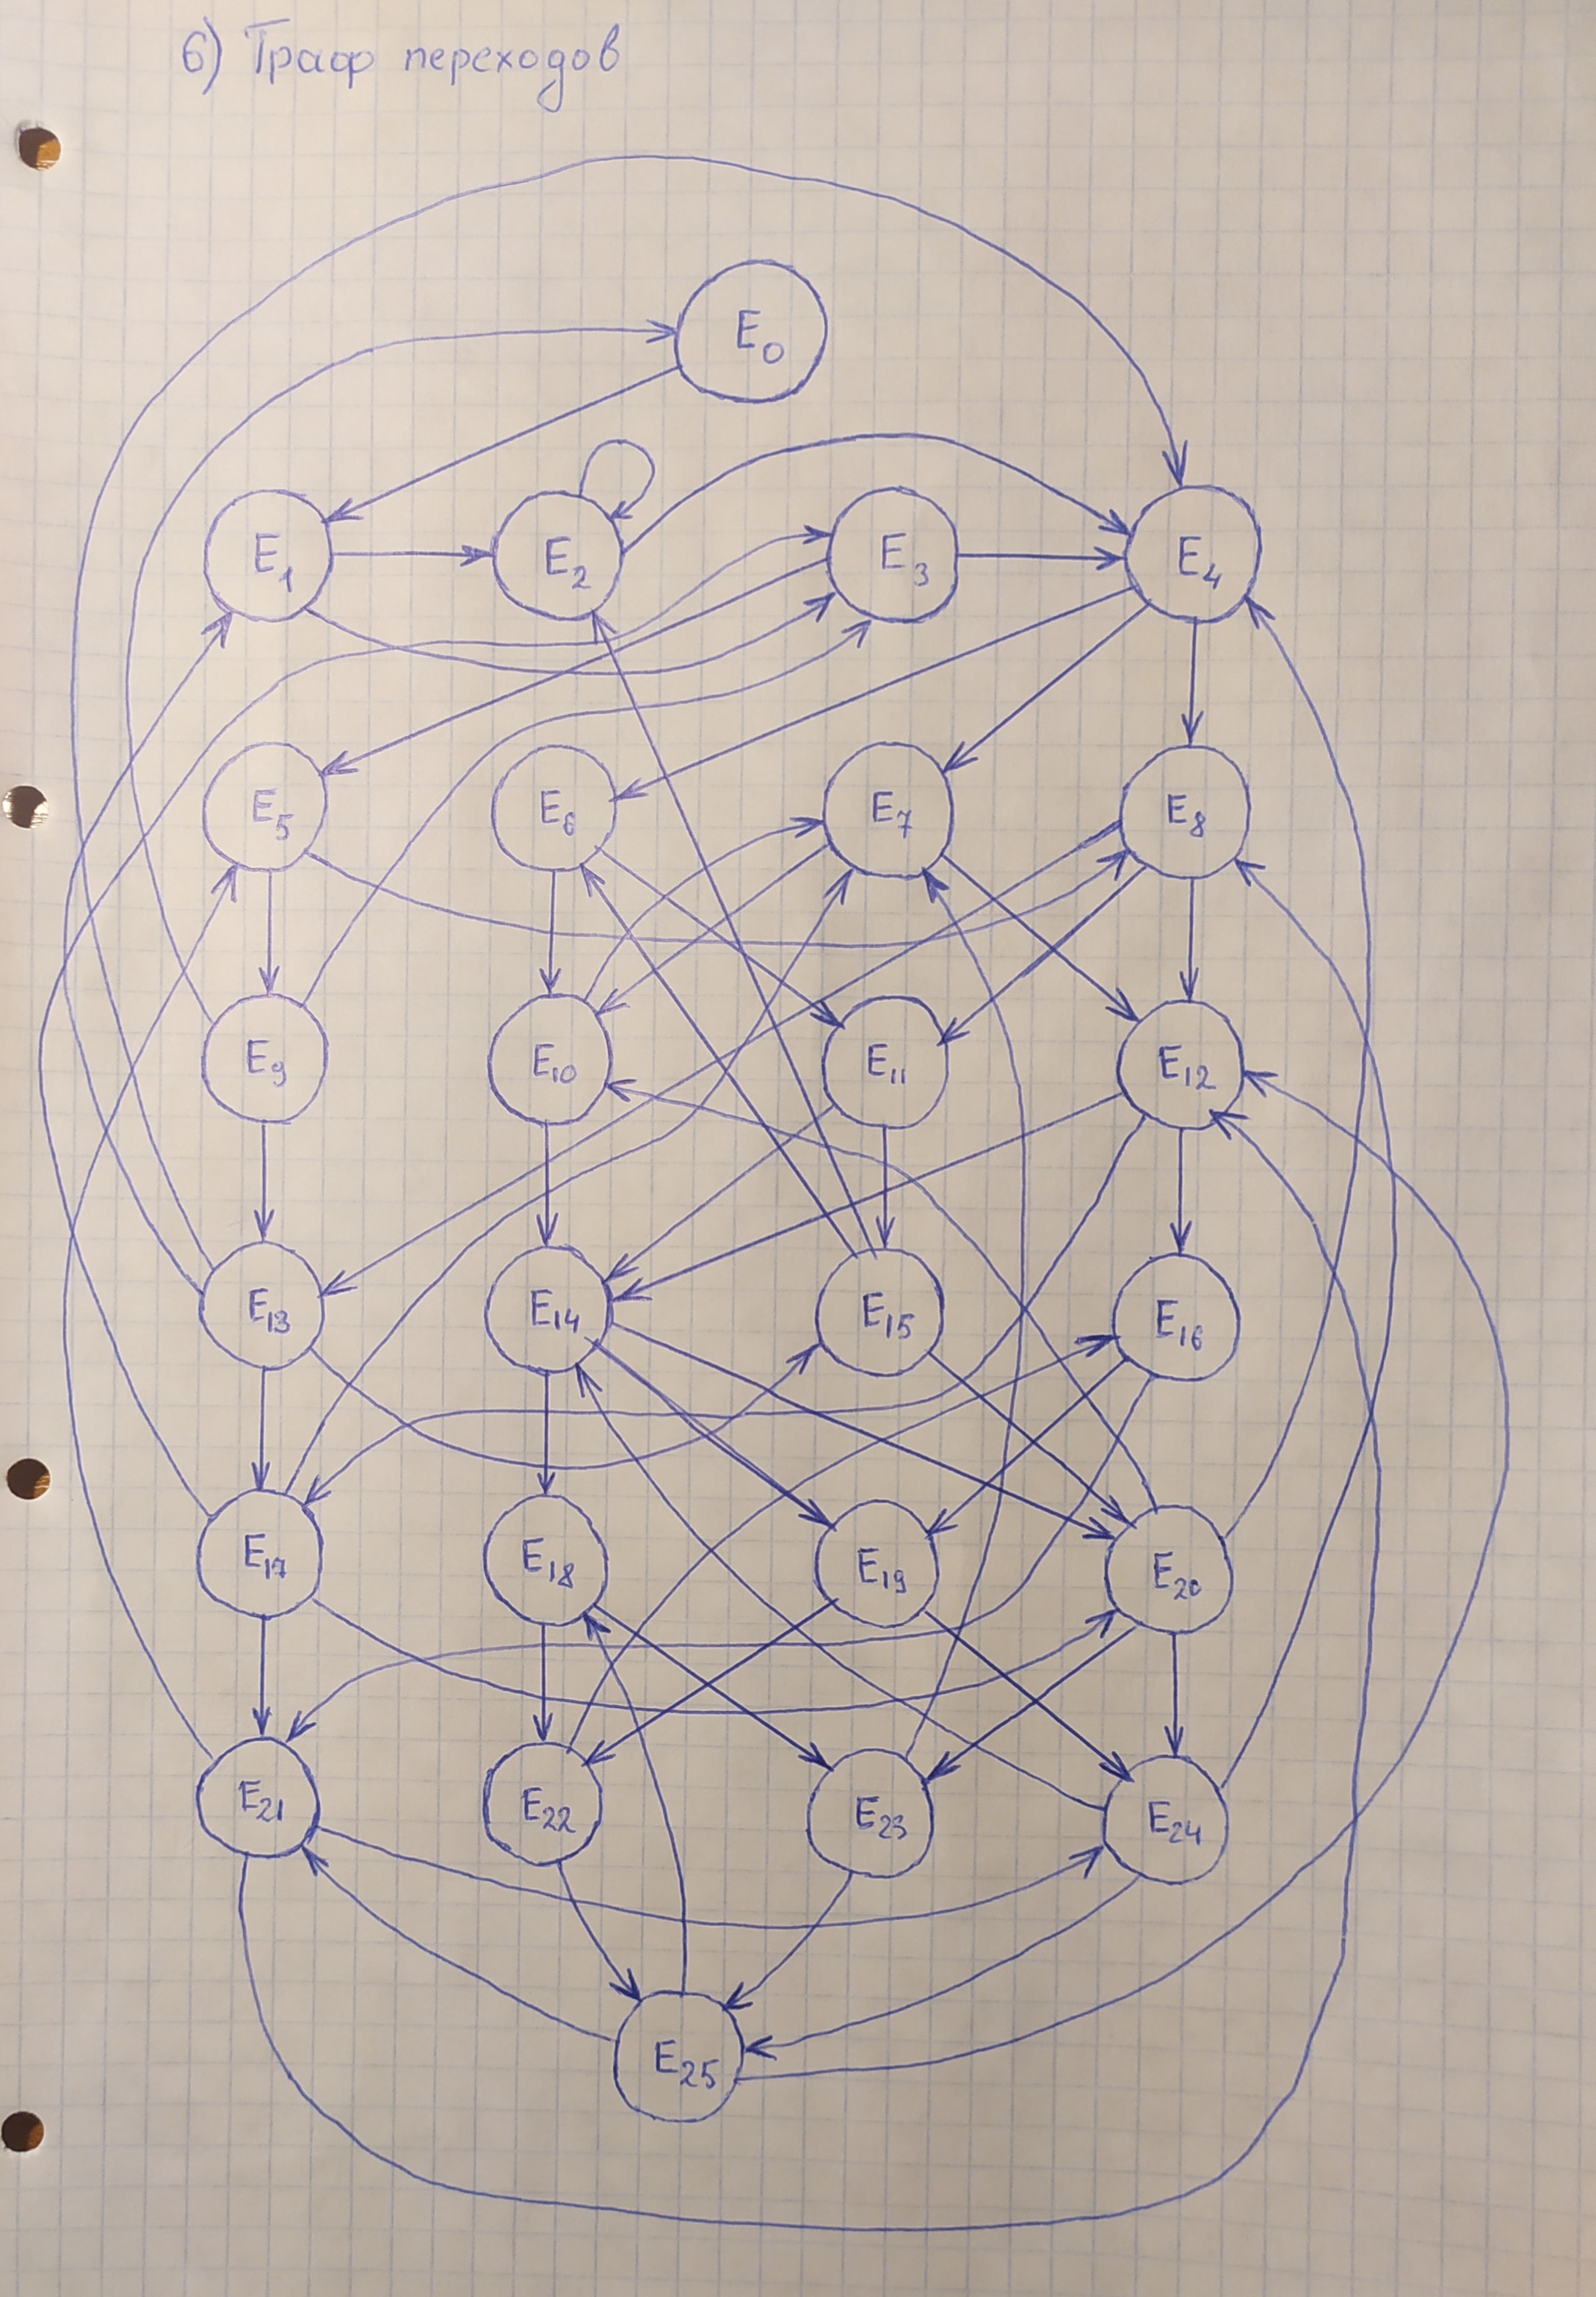 6) Граф переходов
E0
E1 E2 E3 E4
E5 E6 E7 E8
E9 E10 E11 E12
E13 E14 E15 E16
E17 E18 E19 E20
E21 E22 E23 E24
E25